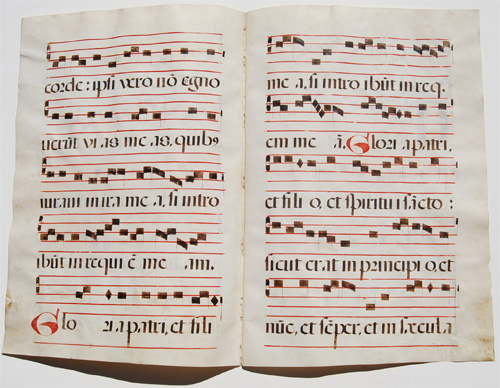 corde: ipſi vero nõ cgno
uerũt vias meas, quibꝯ
iuraui in ira me a, ſi intro
ibũt in requi ẽ me am.
Glo ria patri, et fili
me a, ſi intro ibũt in req.
em me ã. Gloria patri,
et fili o, et ſpiritui ſãcto:
ſicut erat in principi o, et
nũc, et ſẽper, et in ſæcula